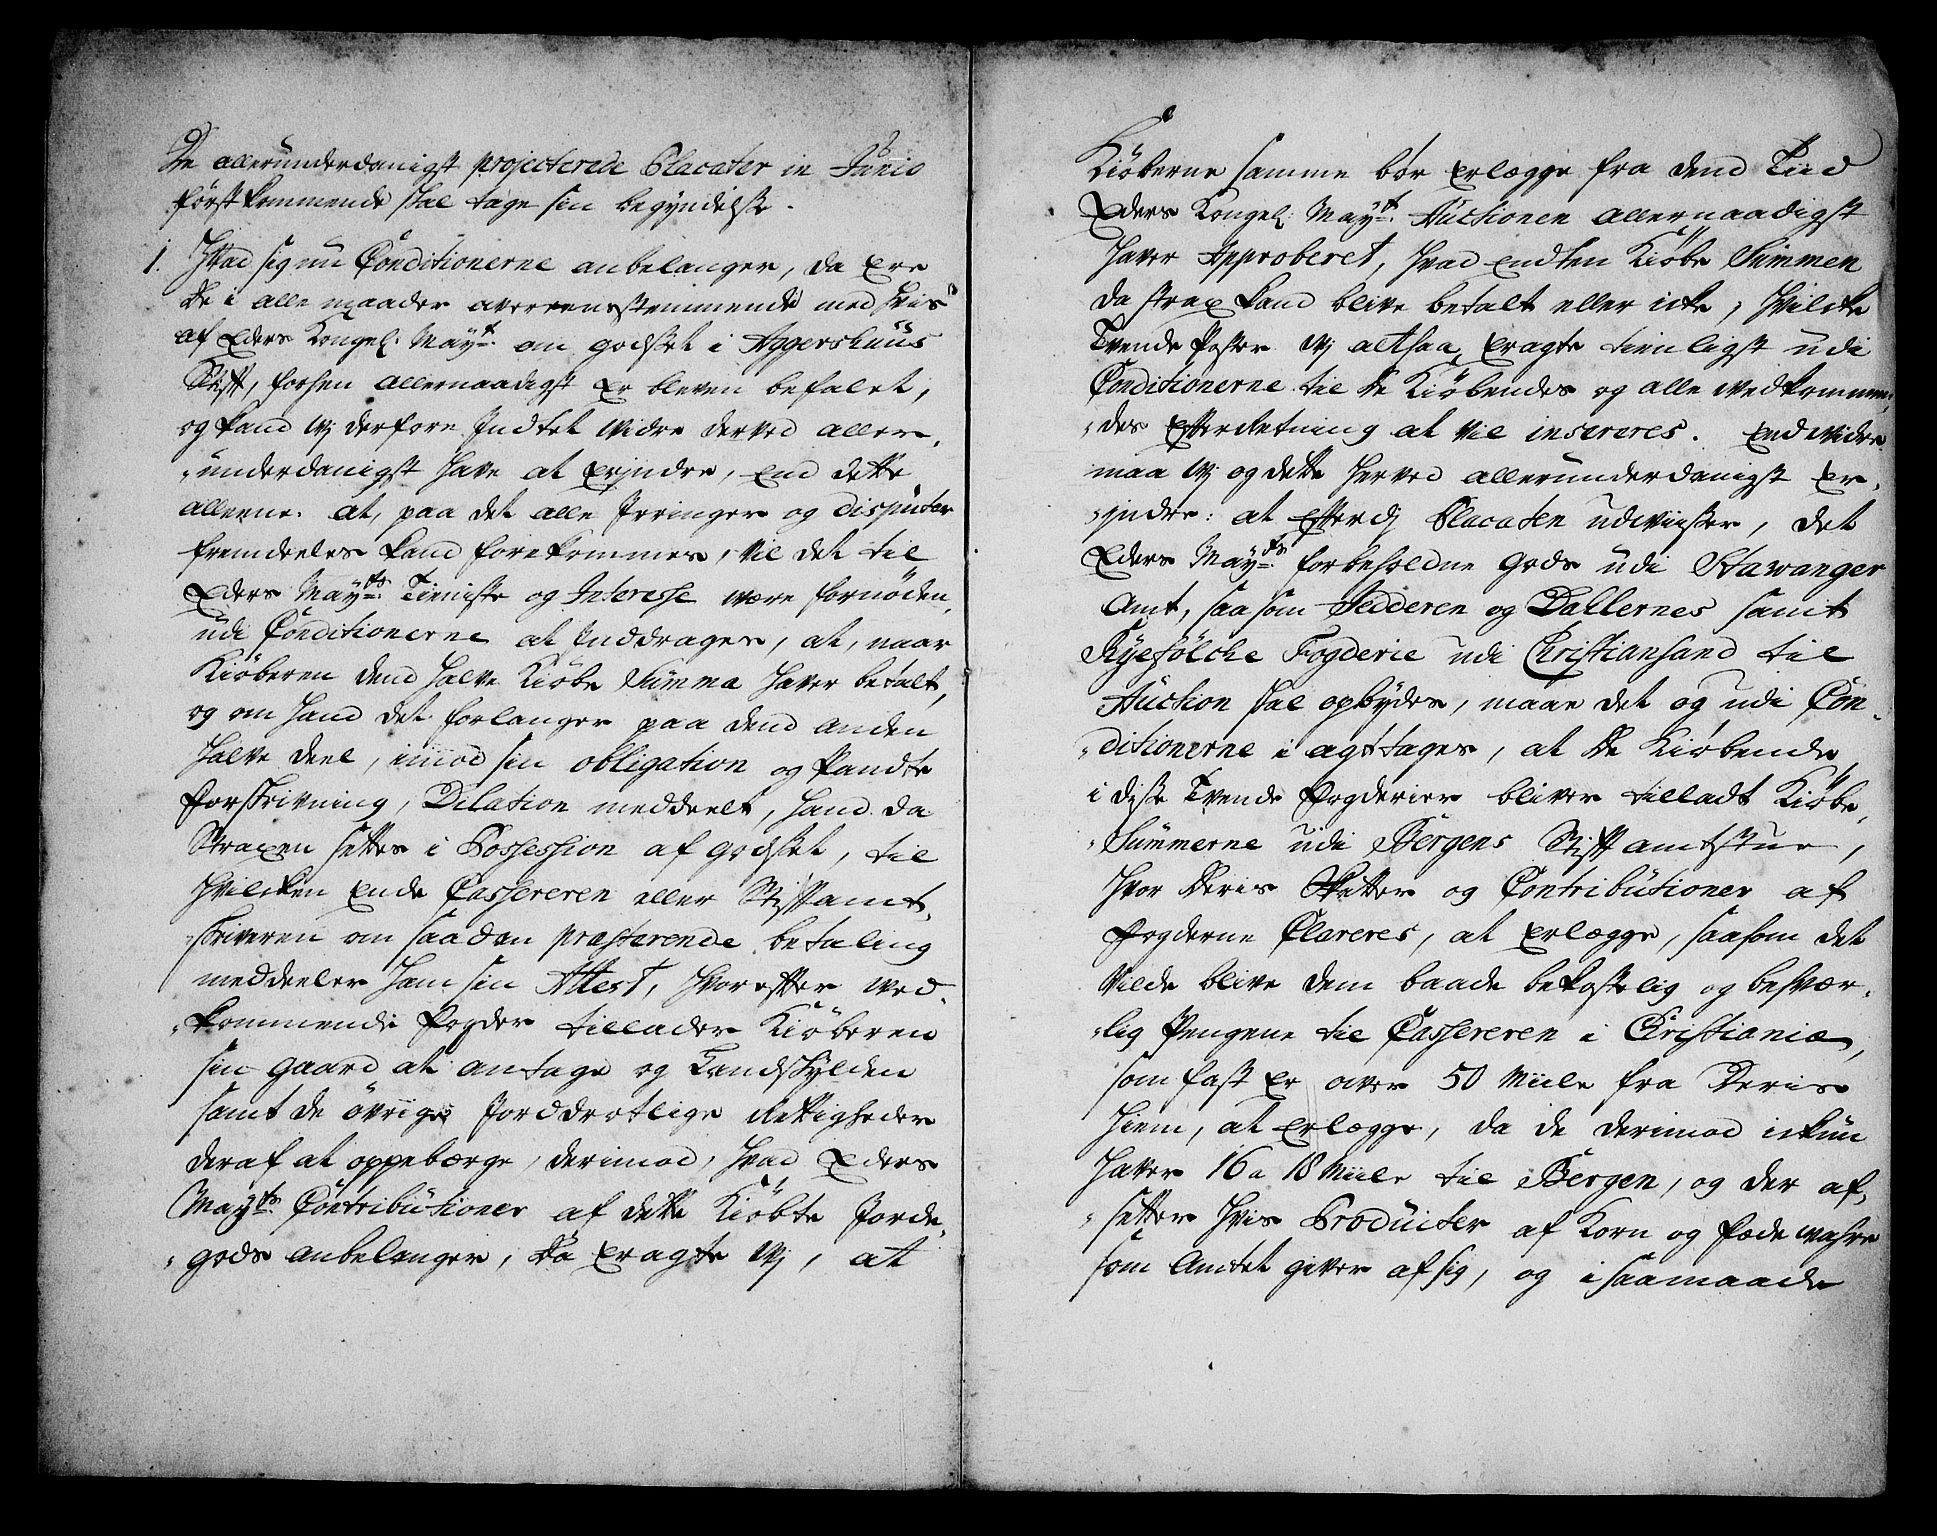 De allerunderdanigst projecterede Placater in Junio
förstkommende skal tage sin begyndelse.
1. Hvad sig nu Conditionerne anbelanger, da ere
de i alle maader overeensstemmende med hvis
af Eders Kongel: Mayt: om godset i Aggershuus
Stift, forhen allernaadigst er bleven befalet,
og kand vj derfore Indtet vidre derved aller,
„underdanigst have at erjndre, end dette
alleene. at, paa det alle Irringer og disputer
fremdeeles kand forekommes, vil det til
Eders Mayts: Tieniste og Interesse være fornöden,
udi Conditionerne at Inddrages, at, naar
Kiöberen dend halve Kiöbe Summa haver betalt,
og om hand det forlanger paa dend anden
halve deel, imod sin obligation og Pandte
forskrivning, Dilation meddeelt, hand da
Straxen settes i Possession af godset, til
hvilcken Ende Cassereren eller Stiftamt,
„skriveren om saadan præsterende betaling
meddeeler ham sin Attest, hvorefter ved,
„kommende Fogder tillader Kiöberen
sin gaard at antage og Landskylden
samt de övrige Jorddrotlige Rettigheder
deraf at oppebærge, derimod, hvad Eders
Mayts: Contributioner af dette Kiöbte Jorde,
„gods anbelanger, da eragte vj, at
Kiöberne samme bör erlægge fra dend Tiid
Eders Kongel: Mayt: Auctionen allernaadigst
haver Approberet, hvad endten Kiöbe Summen
da strax kand blive betalt eller icke, hvilcke
Tvende Poster vj altsaa eragte tienligst udi
Conditionerne til de Kiöbendes og alle vedkommen,
„des Efterretning at vil insereres. End videre
maa vj og dette herved allerunderdanigst er,
„jndre: at efterdj Placaten udviiser, det
Eders Mayts: forbeholdne gods udi Stawanger
Amt, saasom Jedderen og Dallernes samt
Ryefölcke Fogderie udi Christiansand til
Auction skal opbydes, maae det og udi Con,
„ditionerne i agttages, at de Kiöbende
i disse Tvende Fogderier bliver tilladt Kiöbe,
„Summerne udi Bergens Stiftamtstue,
hvor deris Skatter og Contributioner af
Fogderne Clareres, at erlægge, saasom det
vilde blive dem baade bekostelig og besvær,
„lig Pengene til Cassereren i Christiania,
som fast er over 50 Miile fra deris
hiem, at erlægge, da de derimod ickun
haver 16 a 18 Miile til Bergen, og der af,
„setter hvis Producter af Korn og Fæde wahre
som Amtet giver af sig, og i saamaade